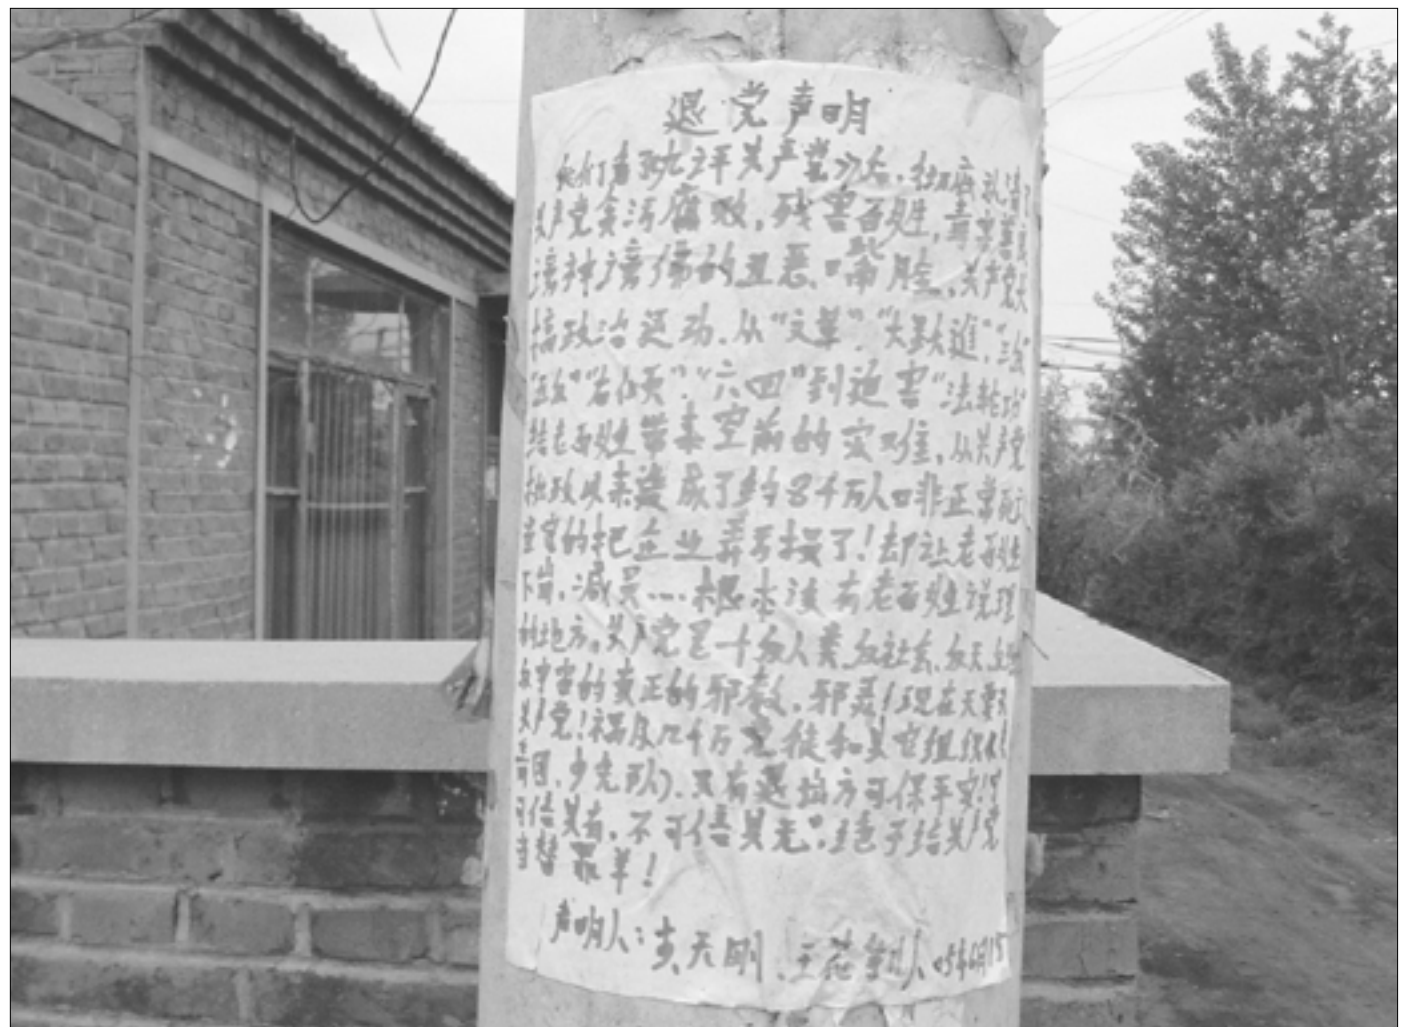 退党声明
我们看到九评共产党以后,
共产党贪污腐败,残害百姓,
谤神谤佛的丑恶嘴脸,共产党
搞政治运动,从“文革”,“大跃進”,
“右倾”,“六四”到迫害“法轮功”
给老百姓带来空前的灾难,从共产党
执政以来造成了约8千万人口非正常死亡
的把企业弄亏损了!却让老百姓
下岗,减员……根本没有老百姓说理
的地方,共产党是一个反人类反社会,反天
宇宙的真正的邪教,邪灵!现在天要灭
共产党!祸及几千万党徒和其它组织
团,少先队)。只有退出方可保平安!宁
可信其有,不可信其无”。绝不给共产党
当替罪羊!
声明人:天刚、王花等 人 05年